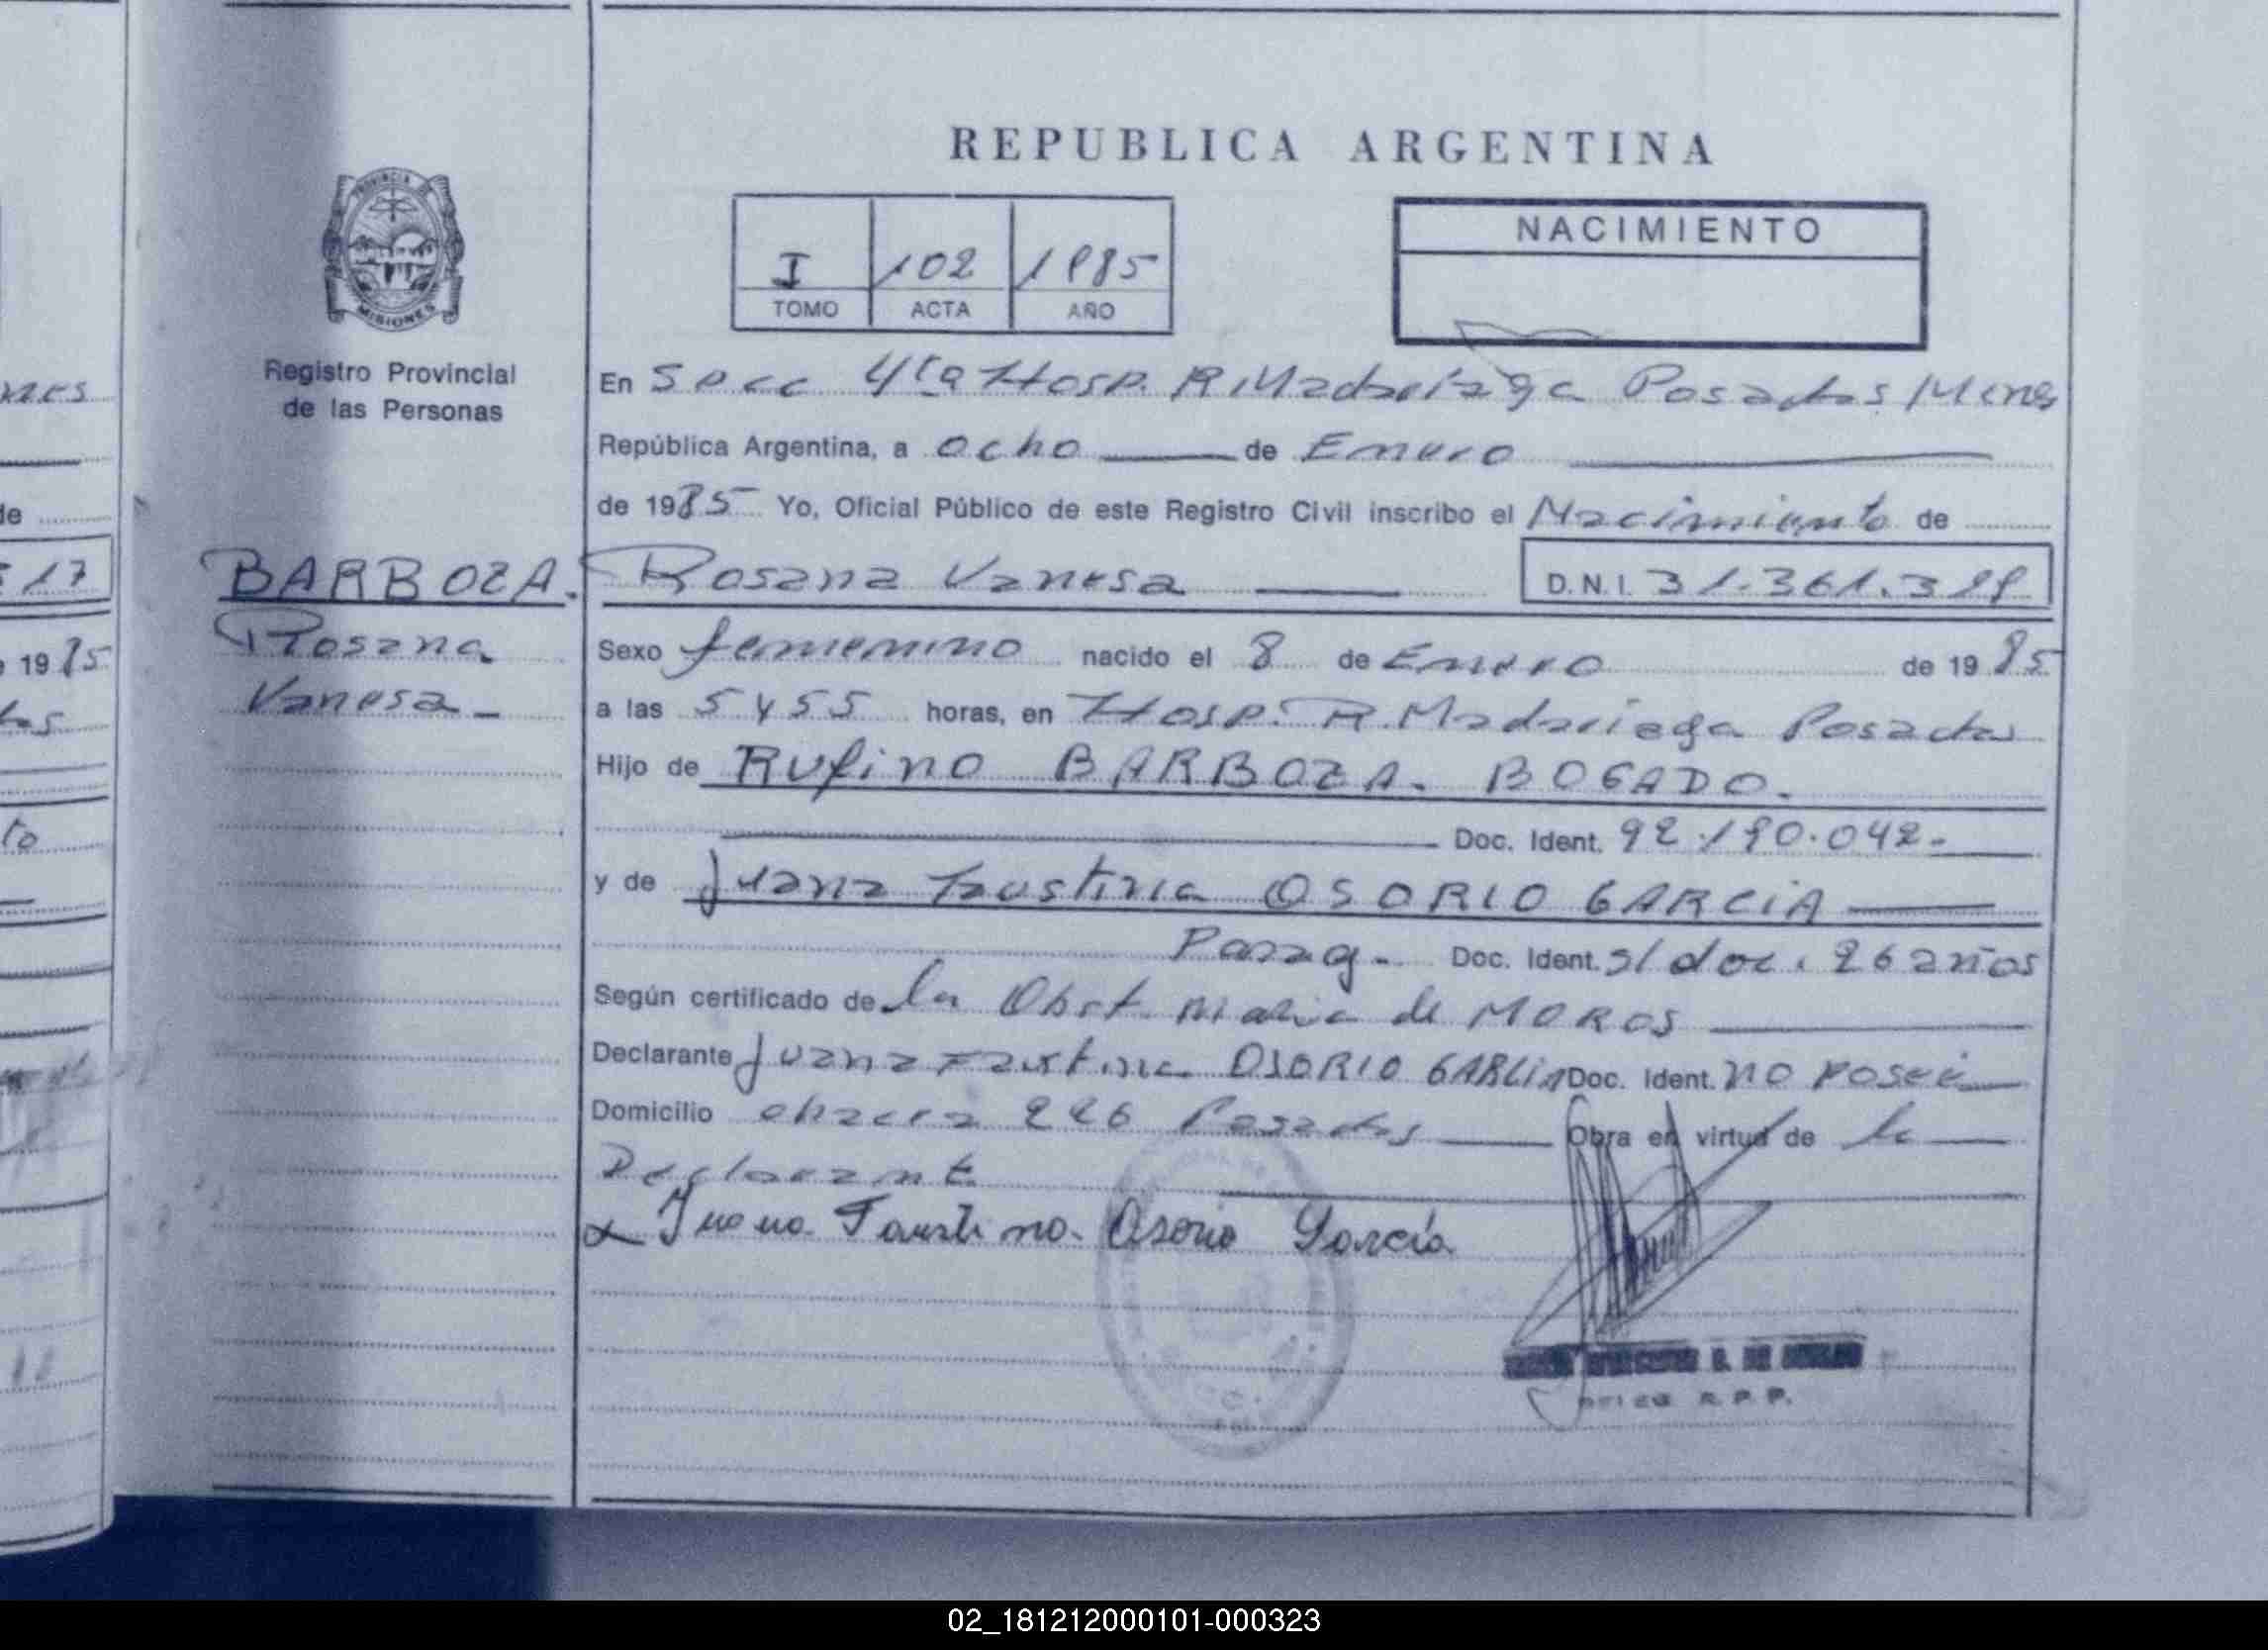 REPUBLICA ARGENTINA
PROVINCIA DE
MISIONES
Registro Provincial
de las Personas
I 102 1985
TOMO ACTA AÑO
NACIMIENTO
En Secc 4ta Hosp. R. Madariaga Posadas Mnes
República Argentina, a ocho de Enero
de 1985 Yo, Oficial Público de este Registro Civil inscribo el Nacimiento de
BARBOZA. Rosana Vanesa D.N.I. 31.361.3
Rosana
Vanesa
Sexo femenino nacido el 8 de Enero de 1985
a las 5 y 55 horas, en Hosp. R. Madariaga Posadas
Hijo de Rufino BARBOZA. BOGADO.
Doc. Ident. 92.190.042.
y de Juana Faustina OSORIO GARCIA
Parag. Doc. Ident. s/ doc. 26 años
Según certificado de la Obst. Maria de MOROS
Declarante Juana Faustina OSORIO GARCIA Doc. Ident. no posee
Domicilio chacra 226 Posadas Obra en virtud de la
Declarante
Juana Faustina Osorio García
R.P.P.
nes
de
17
1985
to
02_181212000101-000323